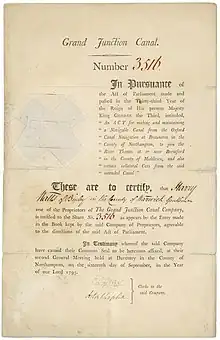 Grand Junction Canal.
Number 3,516
In Pursuance
of the Act of Parliament made and
passed in the Thirty-third Year of
the Reign of His present Majesty
King GEORGE the Third, intituled,
"An ACT for making and maintaining
"a Navigable Canal from the Oxford
"Canal Navigation at Braunston in the
"County of Northampton, to join the
"River Thames at or near Brentford
"in the County of Middlesex, and also
"certain collateral Cuts from the said
"intended Canal."
These are to certify, that Henry
in the County of Warwick Gentleman
one of the Proprietors of The Grand Junction Canal Company,
is entitled to the Share No. 3,516 as appears by the Entry made
in the Book kept by the said Company of Proprietors, agreeable
to the directions of the said Act of Parliament.
In Testimony whereof the said Company
have caused their Common Seal to be hereunto affixed, at their
second General Meeting held at Daventry in the County of
Northampton, on the sixteenth day of September, in the Year
of our Lord 1793.
Clerks to the
said Company.